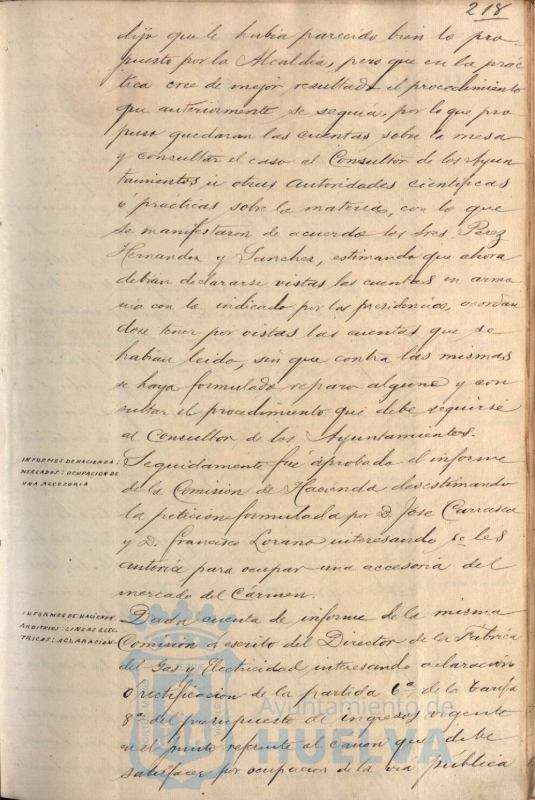 218
dijo que le habia parecido bien lo pro-
puesto por la Alcaldía, pero que en la prác-
tica cree de mejor resultado el procedimiento
que anteriormente se seguía, por lo que pro
puso quedaran las cuentas sobre la mesa
y consultar el caso al Consultor de los Ayun
tamientos ú otras autoridades cientificas
o practicas sobre la materia, con lo que
se manifestaron de acuerdo los Sres. Perez
Hernandez y Sanchez, estimando que ahora
debian declararse vistas las cuentas en armo
nia con lo indicado por la presidencia, acordan
dose tener por vistas las cuentas que se
habian leido, sin que contra las mismas
se haya formulado reparo alguno y con
sultar el procedimiento que debe seguirse
al Consultor de los Ayuntamientos.
INFORMES DE HACIENDA:
MERCADOS: OCUPACION DE
UNA ACCESORIA
Seguidamente fué aprobado el informe
de la Comision de Hacienda desestimando
la peticion formulada por D. Jose Carrasco
y D. Francisco Lorano interesando se les
autorice para ocupar una accesoria del
mercado del Cármen.
INFORMES DE HACIENDA
ARBITRIOS: LINEAS ELEC-
TRICAS: ACLARACION
Dada cuenta de informe de la misma
Comision a escrito del Director de la Fabrica
del Gas y Electricidad interesando aclaracion
o rectificacion de la partida 6ª de la tarifa
8ª del presupuesto de ingresos vigente
en el punto referente al canon que debe
satisfacer por ocupacion de la via pública
Ayuntamiento de
HUELVA